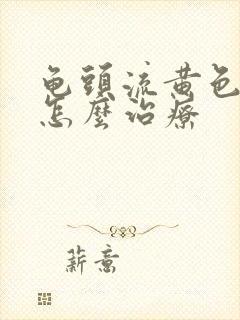 龟頭流黄色
怎麼治療
薪意